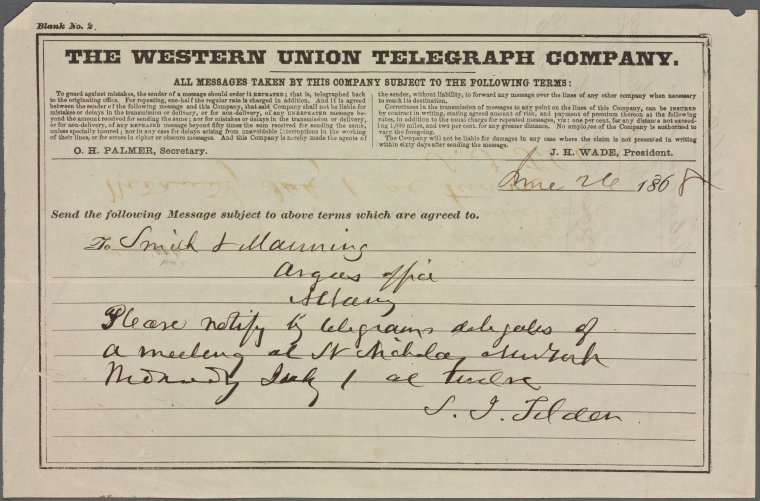 Blank No. 2.
THE WESTERN UNION TELEGRAPH COMPANY.
ALL MESSAGES TAKEN BY THIS COMPANY SUBJECT TO THE FOLLOWING TERMS:
To guard against mistakes, the sender of a message should order it REPEATED; that is, telegraphed back
to the originating office. For repeating, one-half the regular rate is charged in addition. And it is agreed
between the sender of the following message and this Company, that said Company shall not be liable for
mistakes or delays in the transmission or delivery, or for non-delivery, of any UNREPEATED message be-
yond the amount received for sending the same; nor for mistakes or delays in the transmission or delivery,
or for non-delivery, of any REPEATED message beyond fifty times the sum received for sending the same,
unless specially insured; nor in any case for delays arising from unavoidable interruptions in the working
of their lines, or for errors in cipher or obscure messages. And this Company is hereby made the agents of
the sender, without liability, to forward any message over the lines of any other company when necessary
to reach its destination.
Correctness in the transmission of messages to any point on the lines of this Company, can be INSURED
by contract in writing, stating agreed amount of risk, and payment of premium thereon at the following
rates, in addition to the usual charge for repeated messages, viz: one per cent. for any distance not exceed-
ing 1,000 miles, and two per cent. for any greater distance. No employee of the Company is authorized to
vary the foregoing.
The Company will not be liable for damages in any case where the claim is not presented in writing
within sixty days after sending the message.
O. H. PALMER, Secretary.
J. H. WADE, President.
June 26 1868
Send the following Message subject to above terms which are agreed to.
To Smith & Manning
Argus office
Albany
Please notify by telegrams delegates of
a meeting at St Nicholas New York
Monday July 1 at twelve
S. J. Tilden